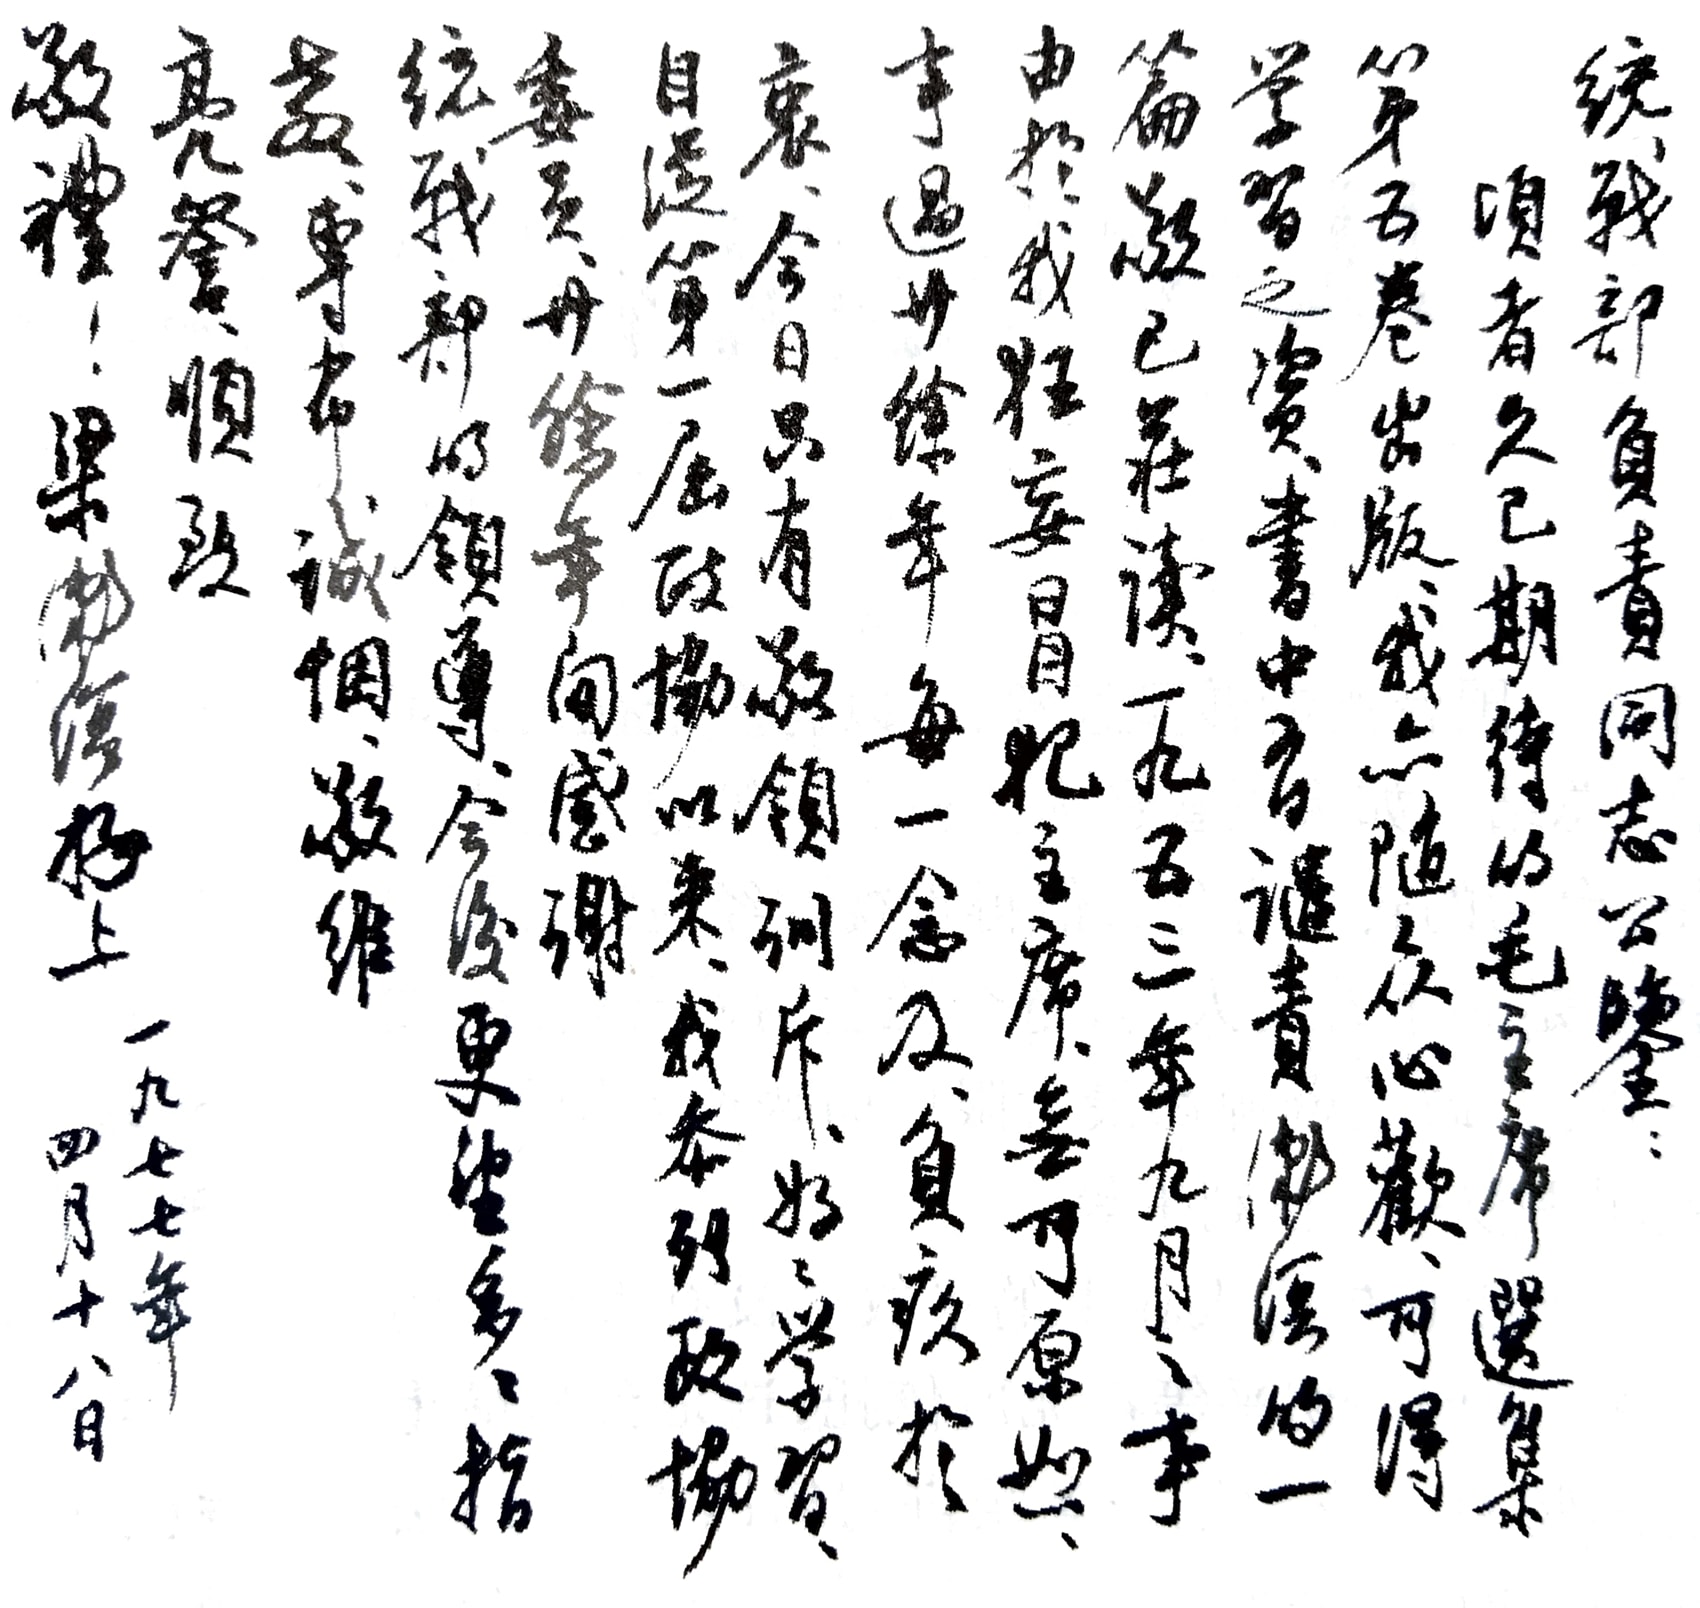 統戰部負責同志公鑒：
頃者久已期待的毛主席選集
第五卷出版、我亦随众心歡、可得
学習之資、書中有譴責漱溟的一
篇敬已莊读、一九五三年九月之事
由於我狂妄冒犯主席、無可原恕、
事過廿餘年每一念及、負疚於
衷、今日只有敬領训斥、好々学習、
自從第一屆政協以来、我参列政協
委员、廿餘年间感谢
統戰部的領導、今後更望多々指
教、專布诚悃、敬維
亮詧、順致
敬禮！梁漱溟 拜上
一九七七年
四月十八日